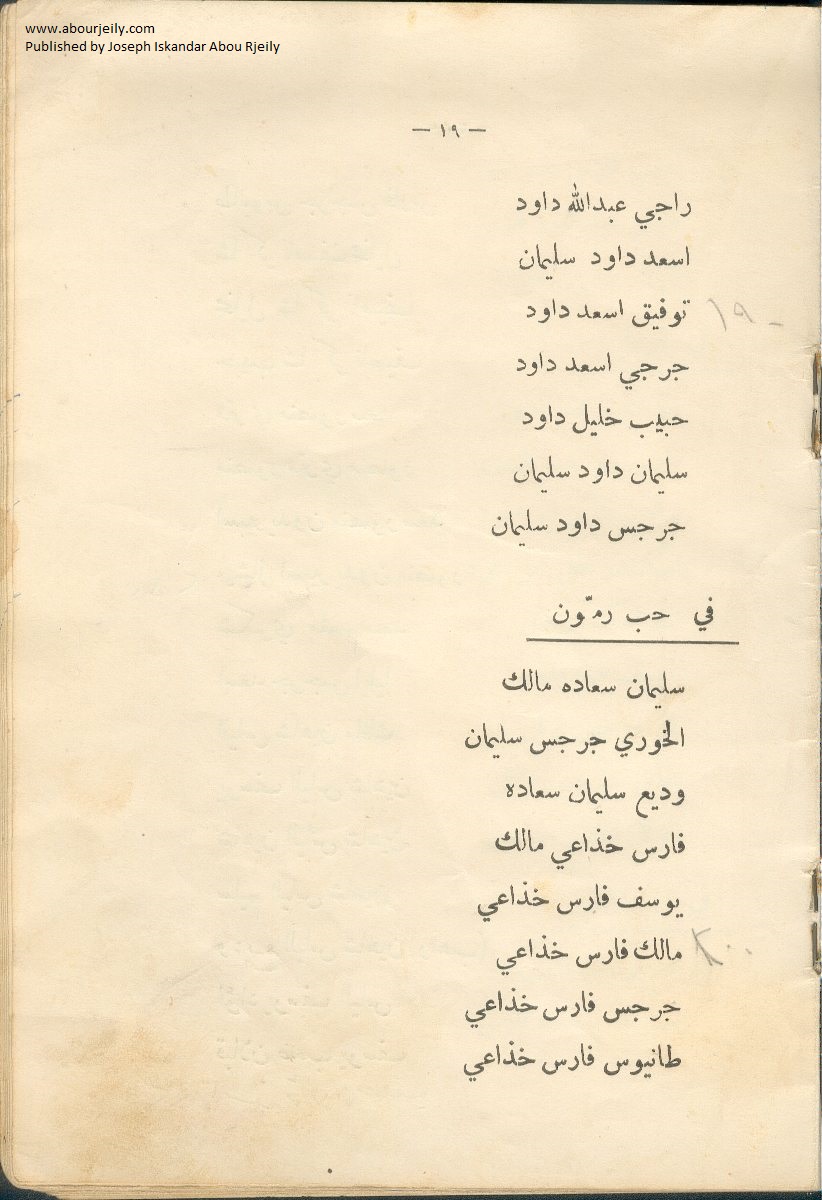 www.abourjeily.com
Published by Joseph Iskandar Abou Rjeily
— ١٩ —
راجي عبدالله داود
اسعد داود سليمان
توفيق اسعد داود
١٩٠
جرجي اسعد داود
حبيب خليل داود
سليمان داود سليمان
جرجس داود سليمان
في حب رمّون
سليمان سعاده مالك
الخوري جرجس سليمان
وديع سليمان سعاده
فارس خذاعي مالك
يوسف فارس خذاعي
مالك فارس خذاعي
جرجس فارس خذاعي
طانيوس فارس خذاعي